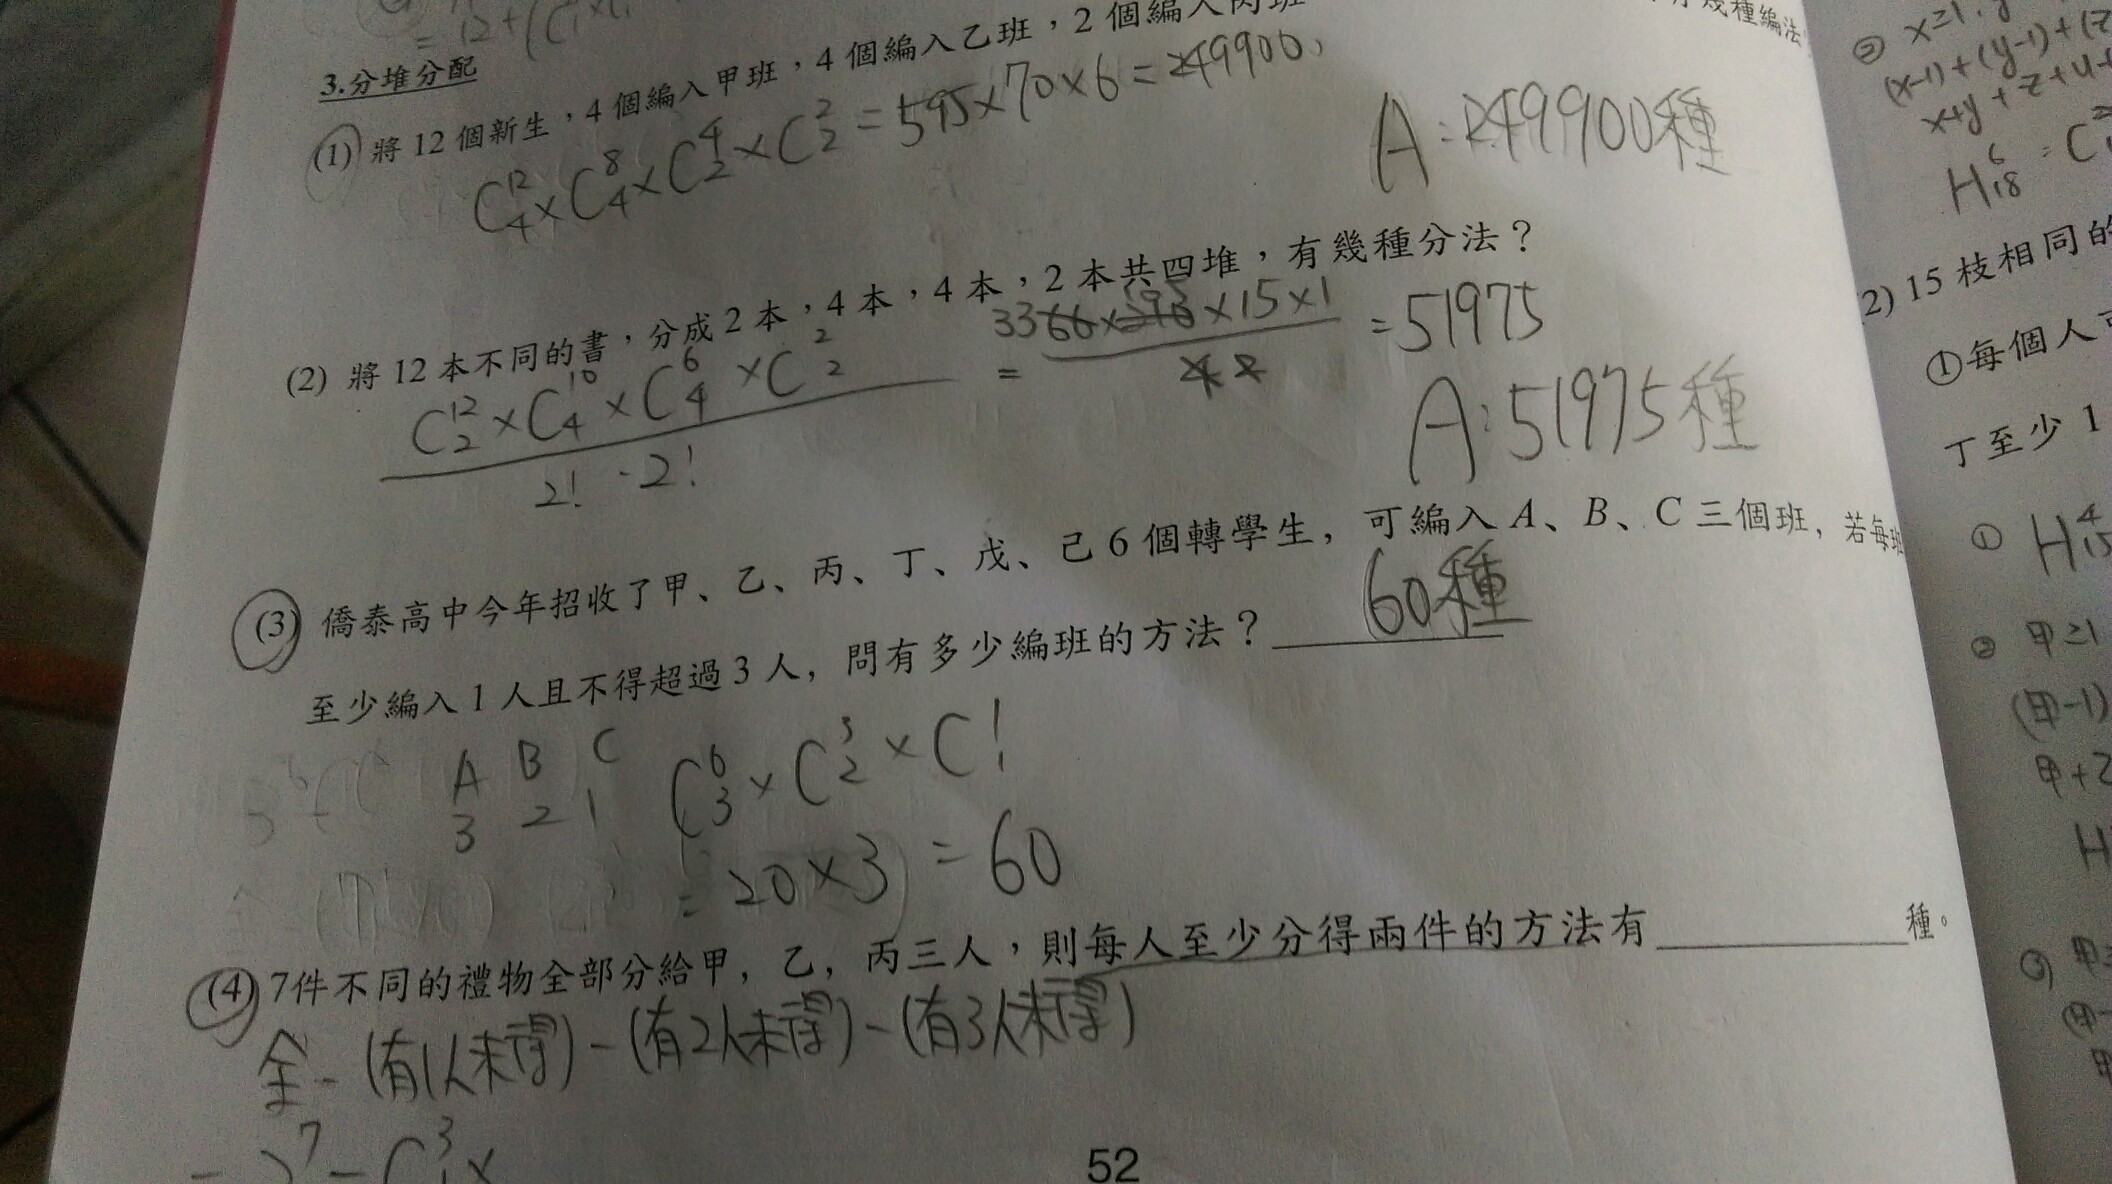 3.分堆分配
(1) 將 12 個新生，4 個編入甲班，4 個編入乙班，2 個編入丙班
幾種編法
C¹²₄×C⁸₄×C⁴₂×C²₂=595×70×6=249900
A:249900種
(2) 將 12 本不同的書，分成 2 本，4 本，4 本，2 本共四堆，有幾種分法？
C¹²₂×C¹⁰₄×C⁶₄×C²₂
2!·2!
= 33 66× ×15×1
=51975
A:51975種
(3) 僑泰高中今年招收了甲、乙、丙、丁、戊、己 6 個轉學生，可編入 A、B、C 三個班，若每班
至少編入 1 人且不得超過 3 人，問有多少編班的方法？60種
A B C
3 2 1
C⁶₃×C³₂×C!
=20×3=60
(4) 7件不同的禮物全部分給甲，乙，丙三人，則每人至少分得兩件的方法有 種。
全-(有1人未得)-(有2人未得)-(有3人未得)
52
② x≥1,y
(x-1)+(y-1)+(z
x+y+z+u+
H⁶₁₈=C
(2) 15 枝相同的
①每個人可
丁至少 1
① H⁴₁₅
② 甲≥1
(甲-1)
甲+乙
H
③ 甲≥
(甲-
甲